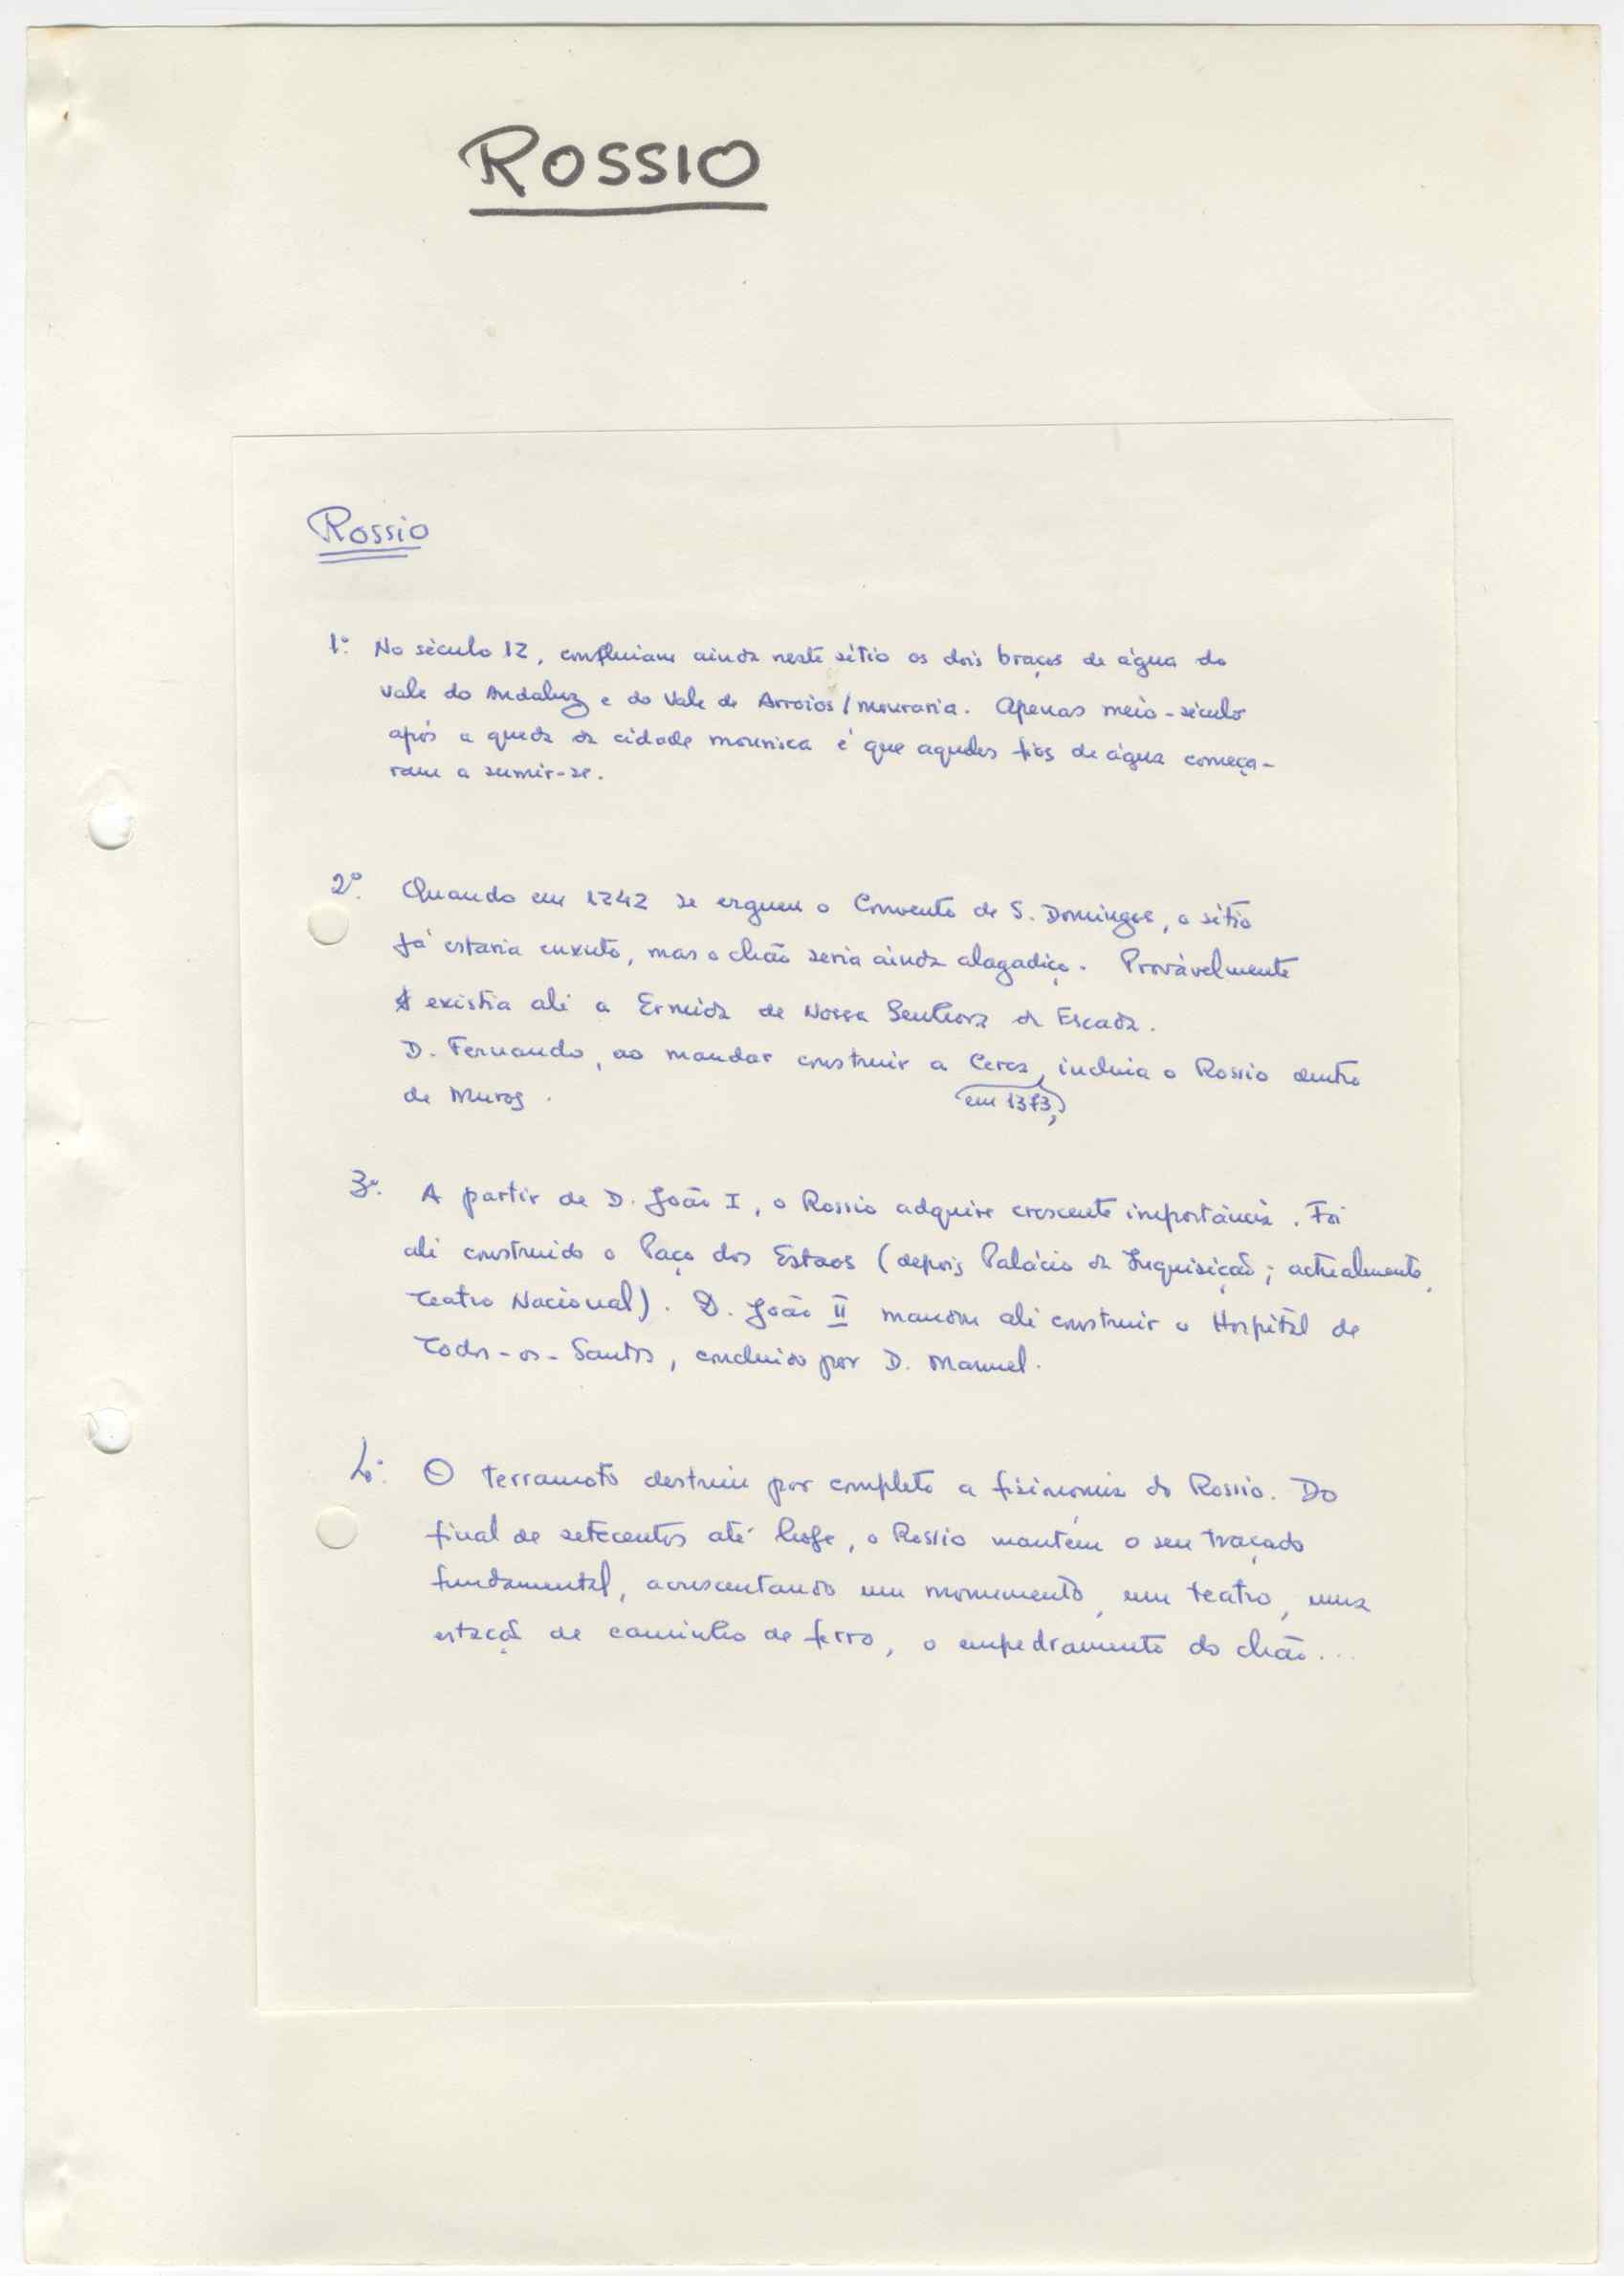 ROSSIO
Rossio
1º. No século 12, confluiam ainda neste sítio os dois braços de água do
Vale do Andaluz e do Vale de Arroios/Mouraria. Apenas meio-século
após a queda da cidade mourisca é que aqueles fios de água começa-
ram a sumir-se.
2º. Quando em 1242 se ergueu o Convento de S. Domingos, o sítio
já estaria enxuto, mas o chão seria ainda alagadiço. Provàvelmente
existia ali a Ermida de Nossa Senhora da Escada.
D. Fernando, ao mandar construir a Cerca, incluia o Rossio dentro
de Muros.
em 1373,
3º. A partir de D. João I, o Rossio adquire crescente importância. Foi
ali construido o Paço dos Estaos (depois Palácio da Inquisição; actualmente,
Teatro Nacional). D. João II mandou ali construir o Hospital de
Todos-os-Santos, concluido por D. Manuel.
4º. O terramoto destruiu por completo a fisinomia do Rossio. Do
final de setecentos até hoje, o Rossio mantém o seu traçado
fundamental, acrescentando um monumento, um teatro, uma
estação de caminho de ferro, o empedramento do chão...